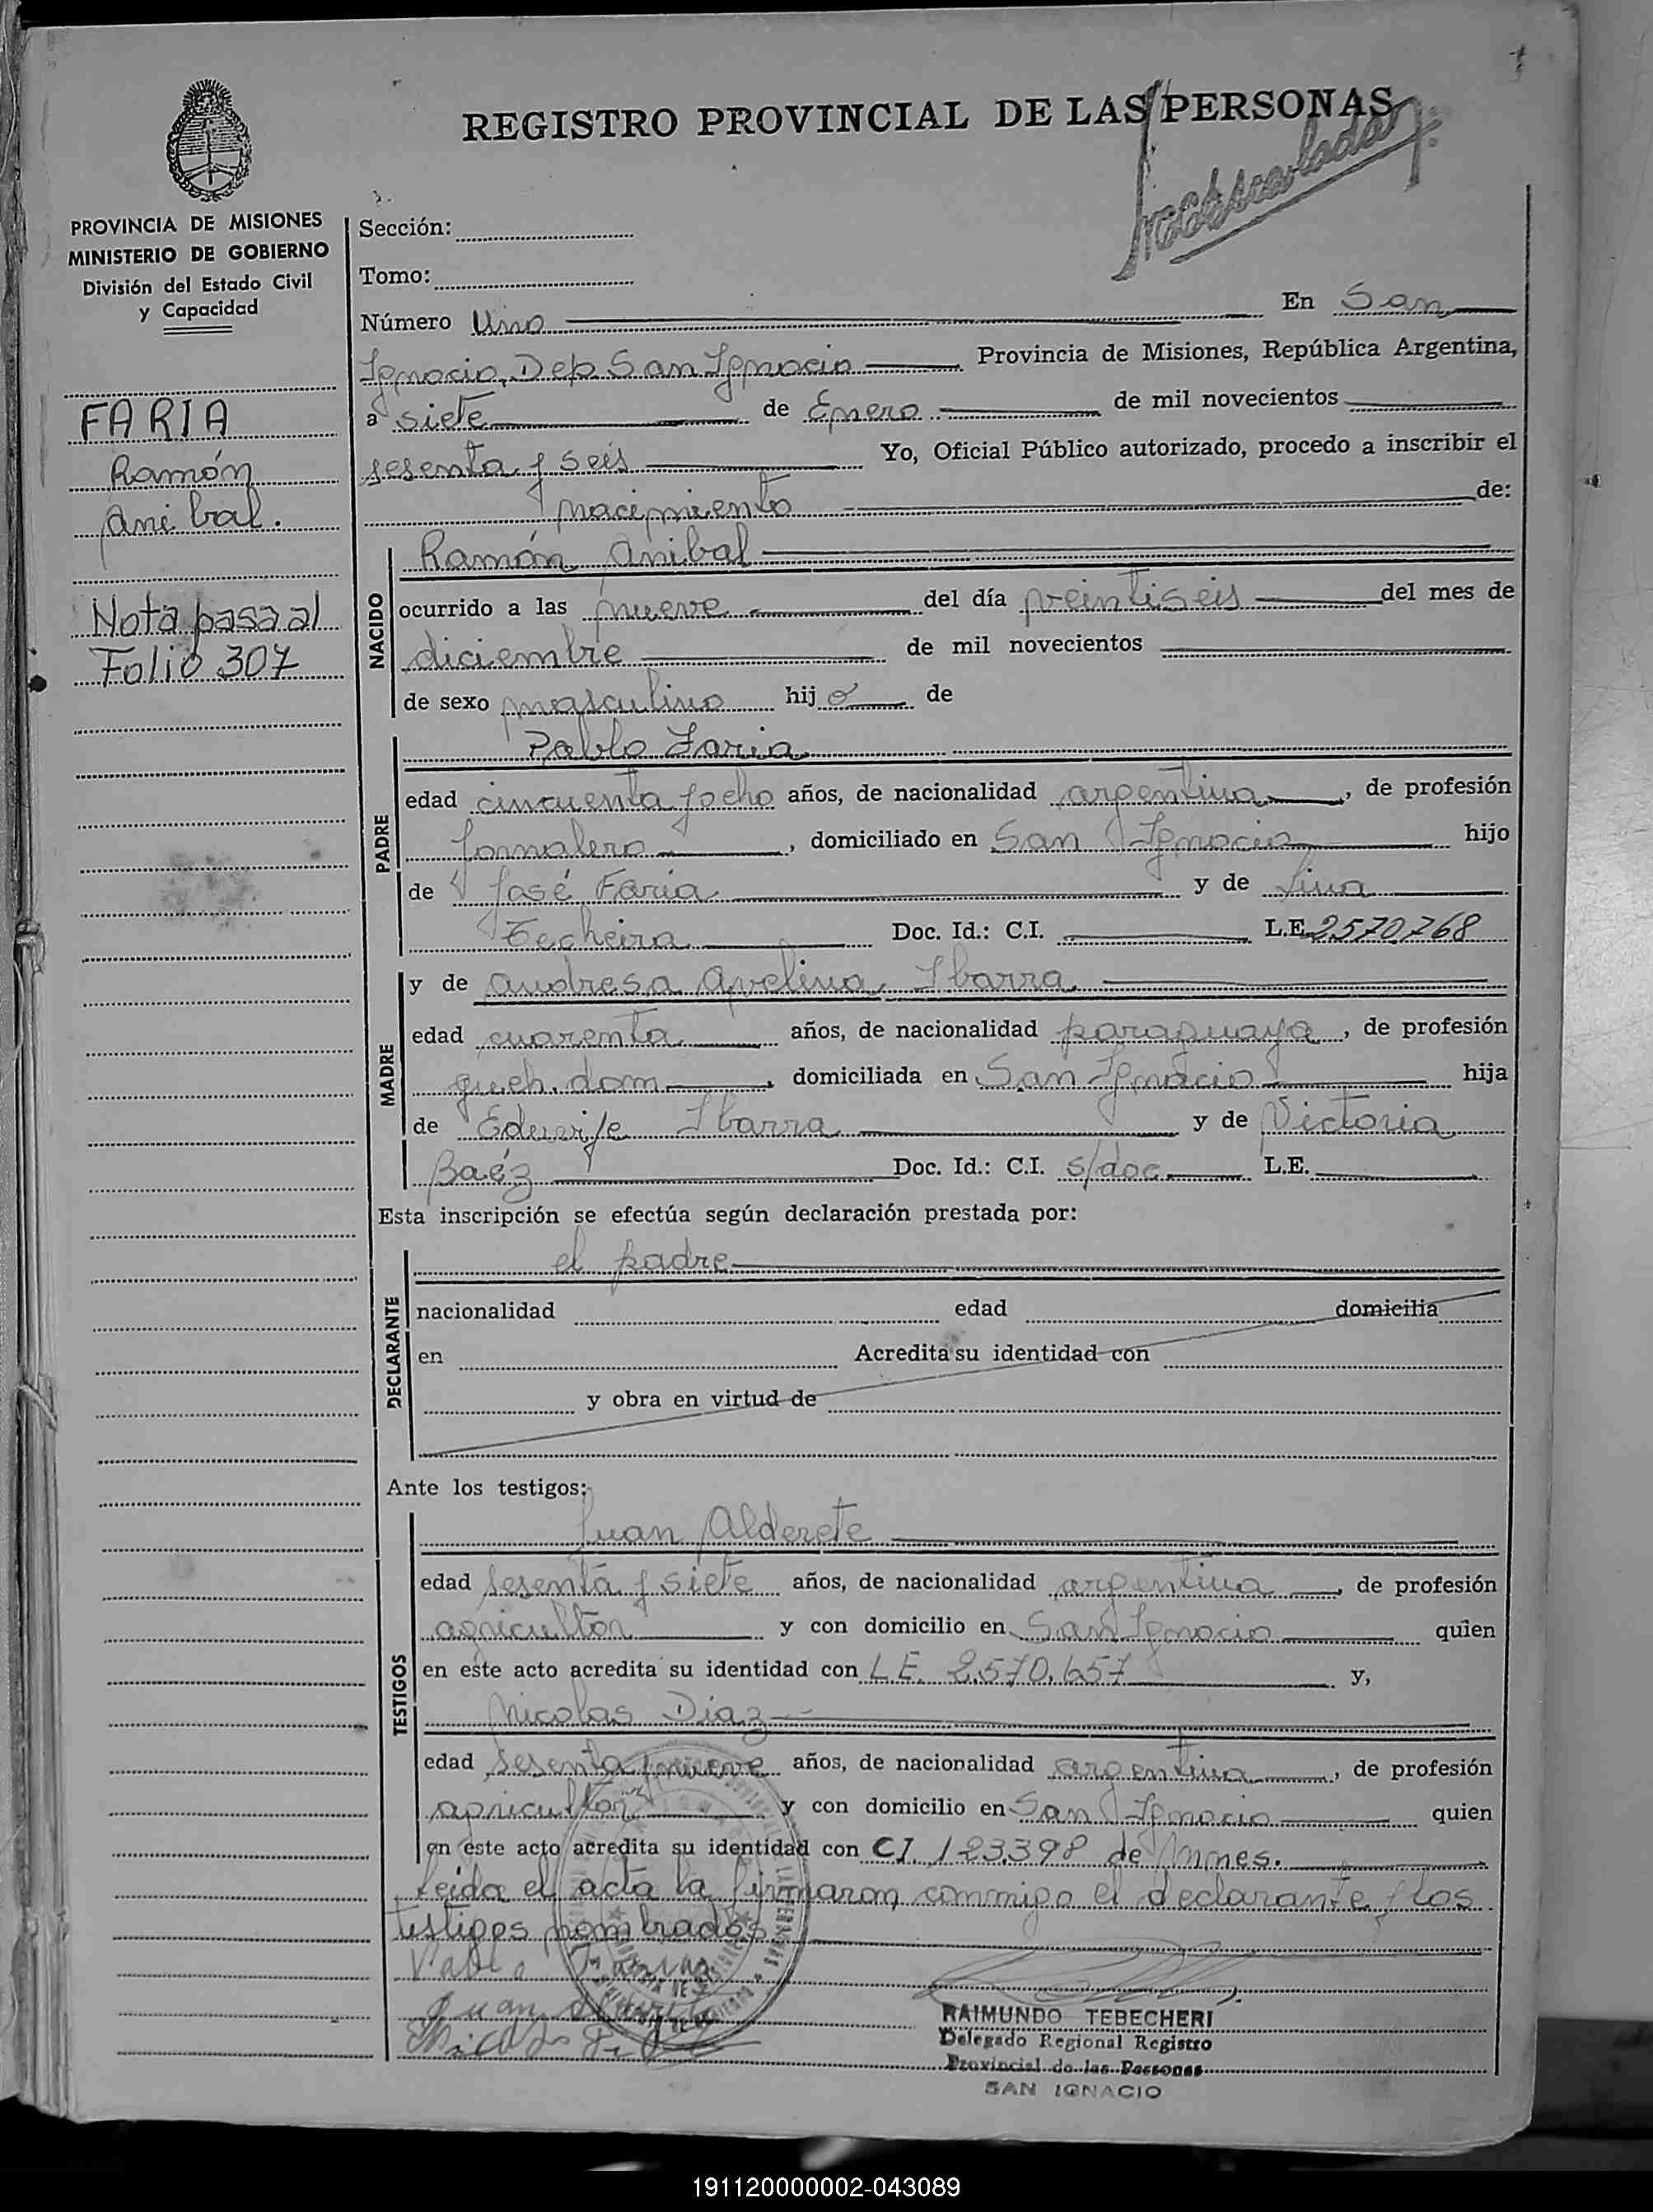 1
REGISTRO PROVINCIAL DE LAS PERSONAS
PROVINCIA DE MISIONES
MINISTERIO DE GOBIERNO
División del Estado Civil
y Capacidad
FARIA
Ramón
Anibal.
Nota pasa al
Folio 307
Sección:
Tomo:
Número Uno En San
Ignacio, Dep. San Ignacio Provincia de Misiones, República Argentina,
a siete de Enero de mil novecientos
sesenta y seis Yo, Oficial Público autorizado, procedo a inscribir el
nacimiento de:
NACIDO
Ramón Anibal
ocurrido a las nueve del día veintiseis del mes de
diciembre de mil novecientos
de sexo masculino hijo de
PADRE
Pablo Faria
edad cincuenta y ocho años, de nacionalidad argentina, de profesión
Jornalero, domiciliado en San Ignacio hijo
de José Faria y de Lina
Techeira Doc. Id.: C.I. L.E. 2.570.768
MADRE
y de Andresa Avelina Ibarra
edad cuarenta años, de nacionalidad paraguaya, de profesión
queh. dom., domiciliada en San Ignacio hija
de Ibarra y de Victoria
Baéz Doc. Id.: C.I. s/doc. L.E.
Esta inscripción se efectúa según declaración prestada por:
DECLARANTE
el padre
nacionalidad edad domicilia
en Acredita su identidad con
y obra en virtud de
Ante los testigos:
TESTIGOS
Juan Alderete
edad sesenta y siete años, de nacionalidad argentina, de profesión
agricultor y con domicilio en San Ignacio quien
en este acto acredita su identidad con L.E. 2.570.657 y,
Nicolas Diaz
edad sesenta y nueve años, de nacionalidad argentina, de profesión
agricultor y con domicilio en San Ignacio quien
en este acto acredita su identidad con C.I. 123.398 de Mnes.
Leida el acta la firmaron conmigo el declarante y los
testigos nombrados.
Pablo Faria
Juan
RAIMUNDO TEBECHERI
Delegado Regional Registro
Provincial de las Personas
SAN IGNACIO
191120000002-043089